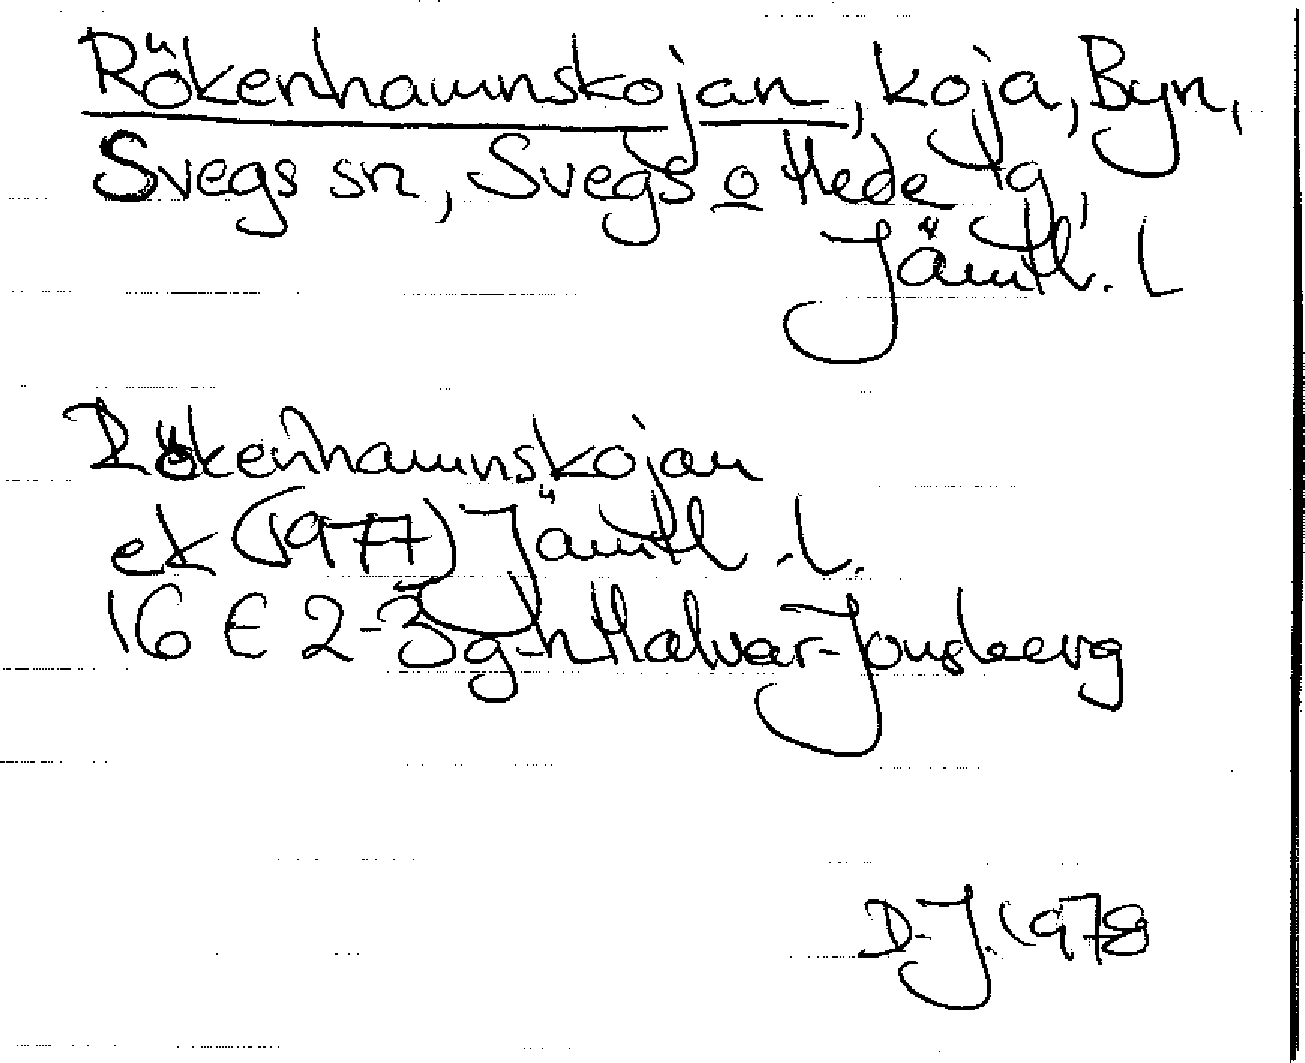 Rökenhamnskojan, koja, Byn,
Svegs sn, Svegs o Hede tg,
Jämtl. L
Rökenhamnskojan
ek (1977) Jämtl .L.
16 E 2-3 g-h Halvar-Jonsberg
D.J. 1978